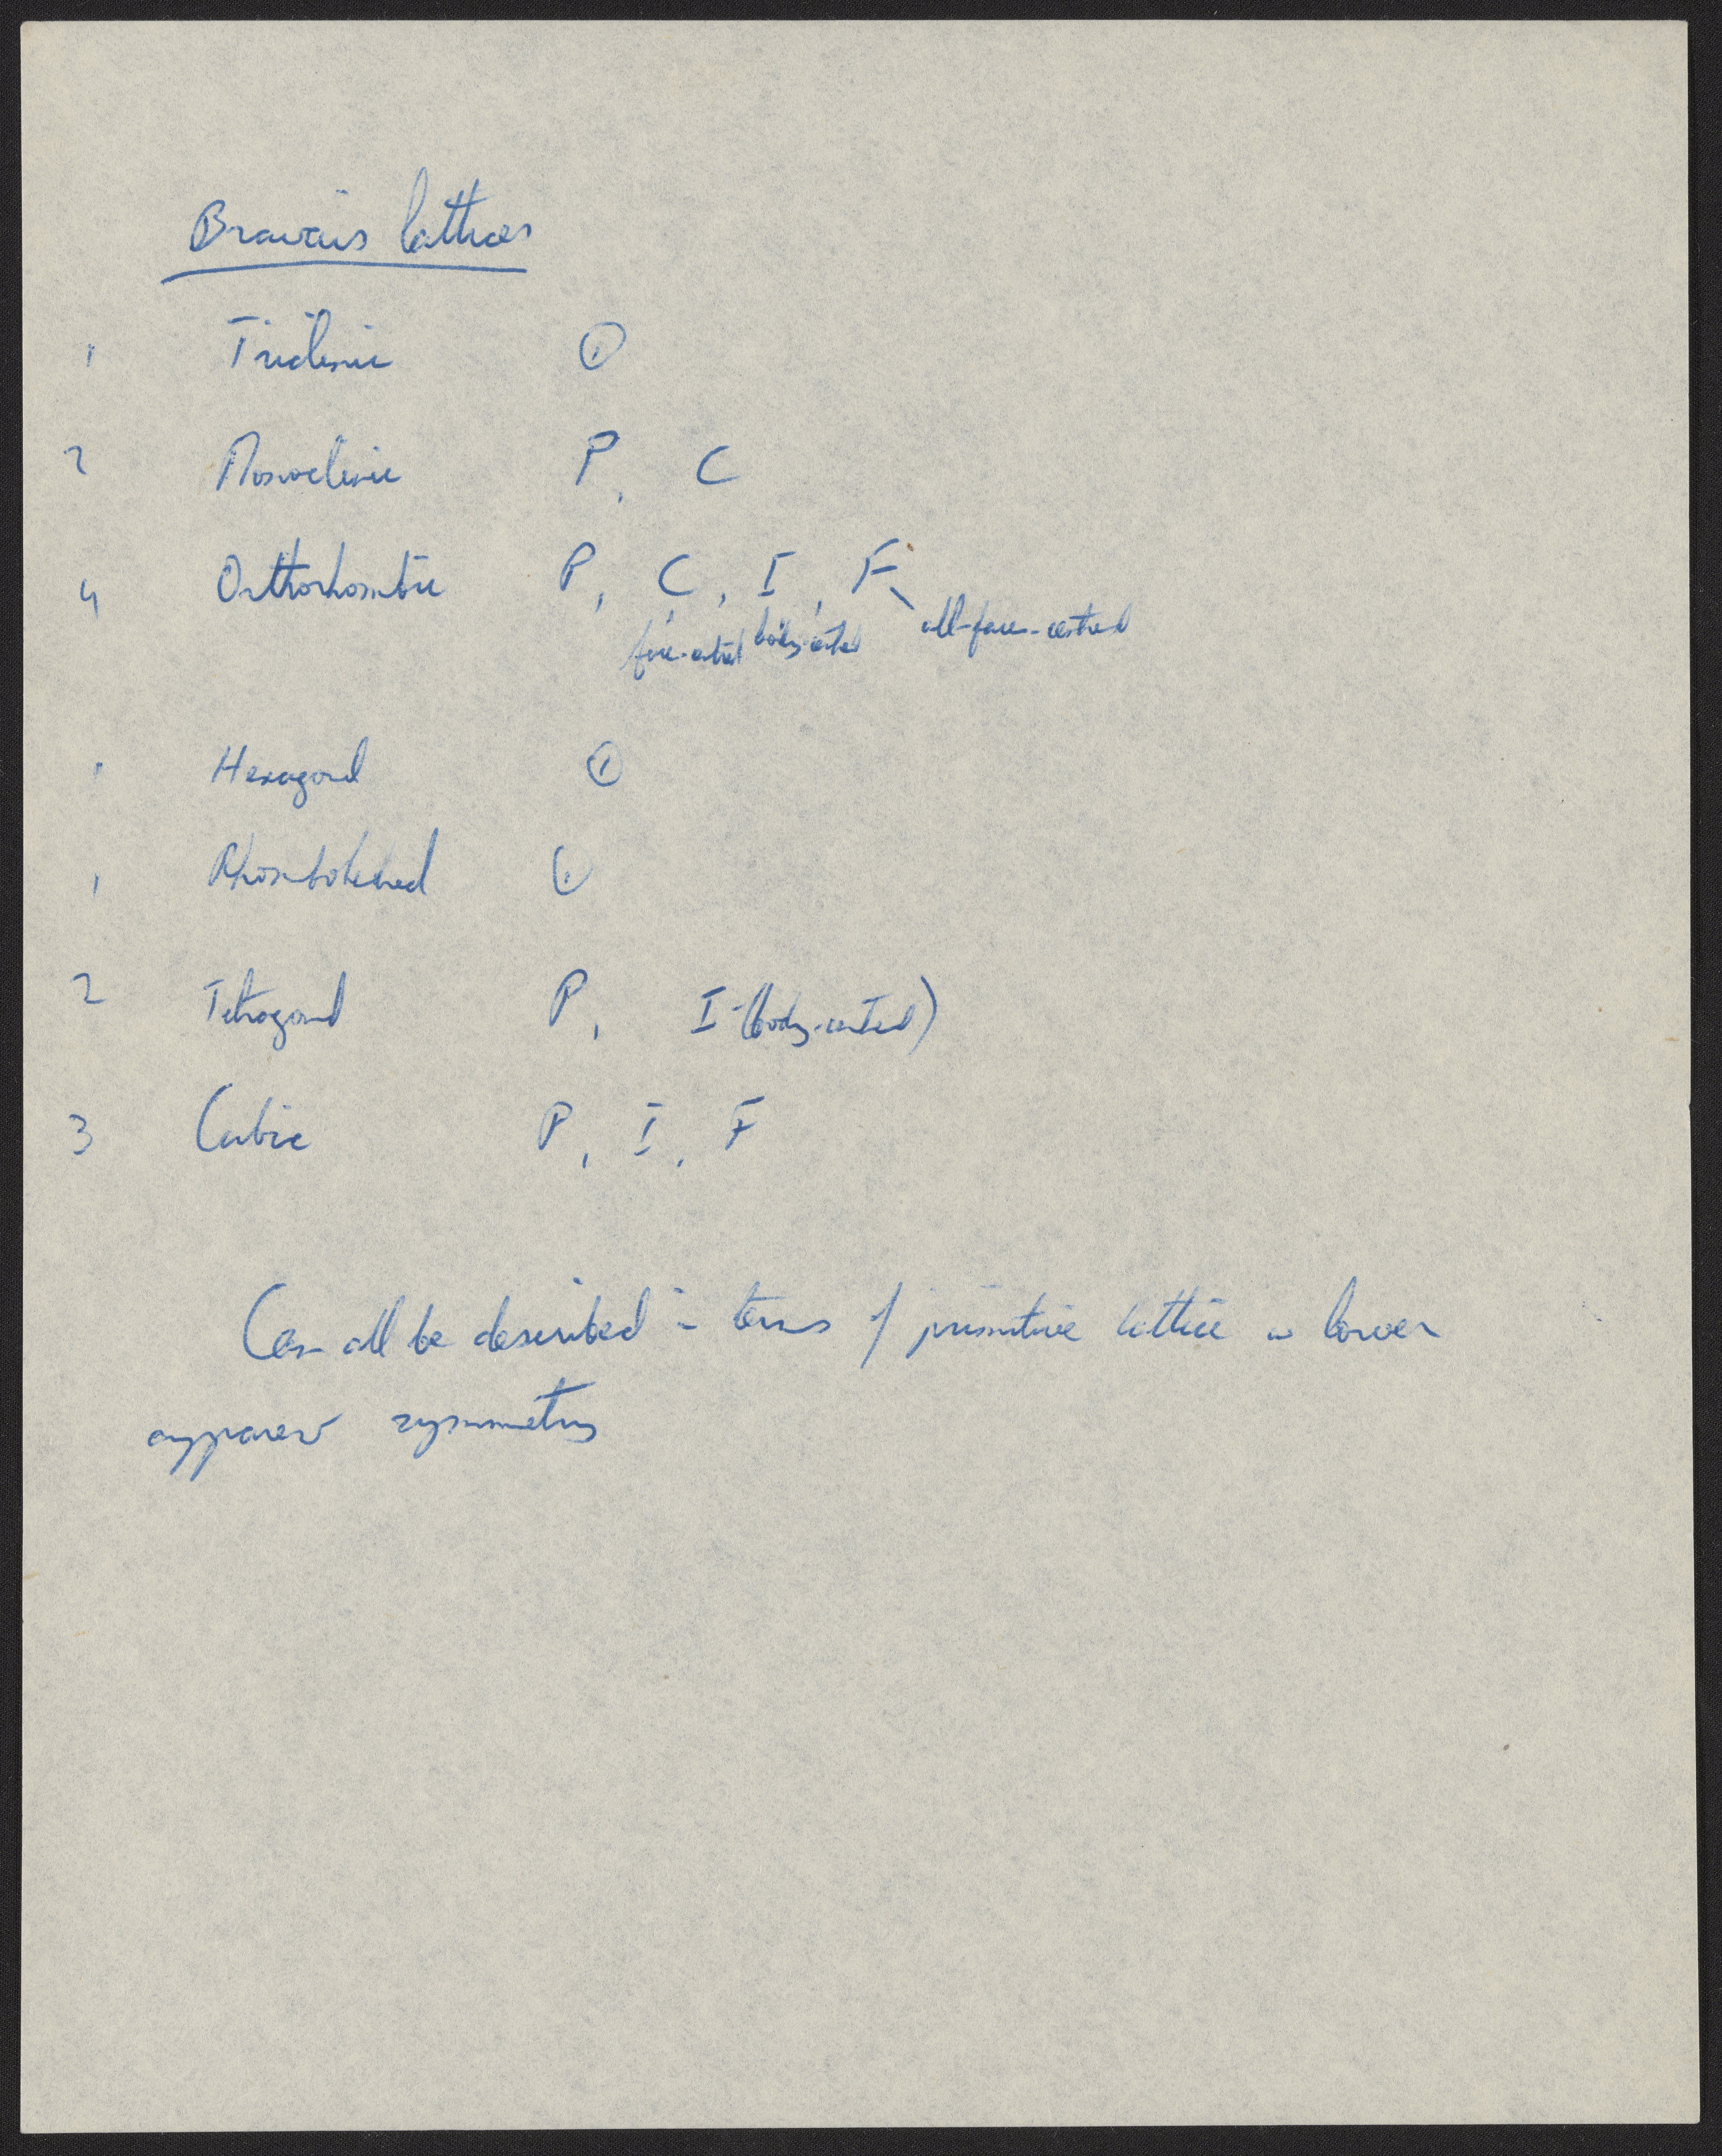 Bravais lattices
1 Triclinic ①
2 Monoclinic P, C
4 Orthorhombic P, C, I, F
face-centred body-centred all-face-centred
1 Hexagonal ①
1 Rhombohedral ①
2 Tetragonal P, I (body-centred)
3 Cubic P, I, F
Can all be described in terms of primitive lattice w lower
apparent symmetry